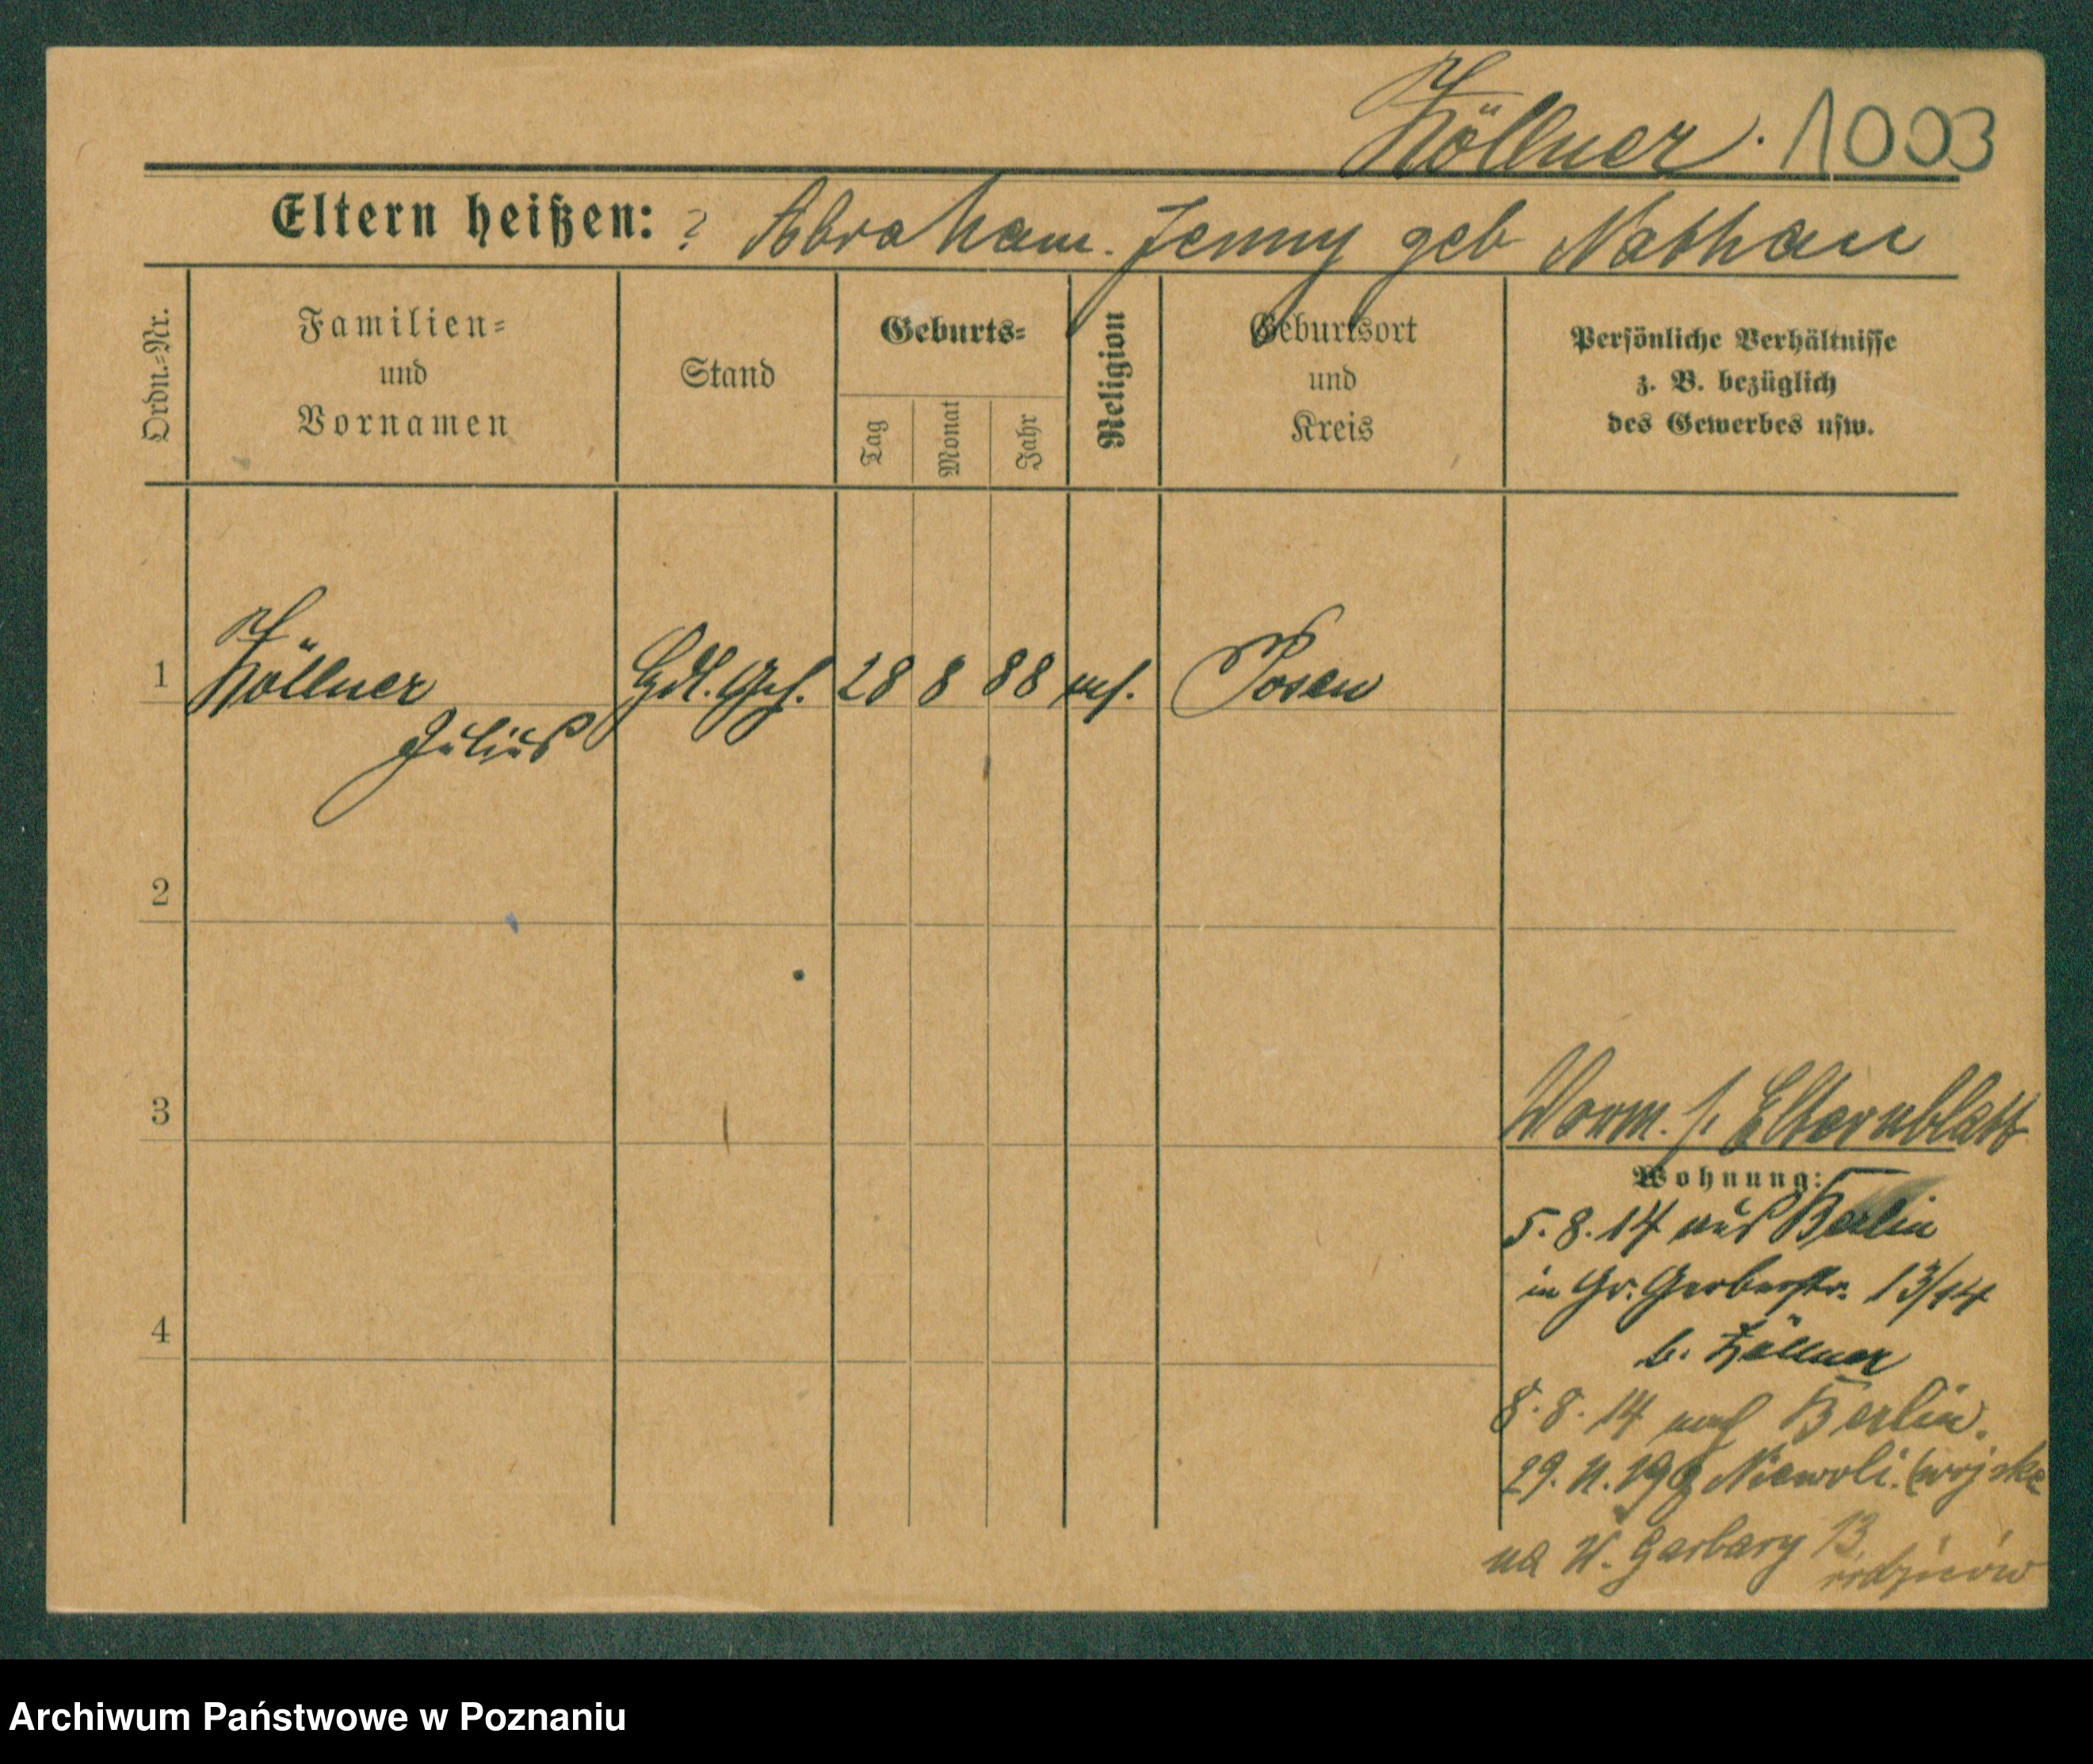 Zöllner. 1003
Eltern heißen: ? Abraham. Jenny geb Nathan
Ordn.=Nr.
Familien=
und
Vornamen
Stand
Geburts=
Tag
Monat
Jahr
Religion
Geburtsort
und
Kreis
Persönliche Verhältnisse
z. B. bezüglich
des Gewerbes usw.
1 Zöllner Hdl. Geh. 28 8 88 mos. Posen
Julius
2
3
Vorm. s. Elternblatt
Wohnung:
5. 8. 14 aus Berlin
in Gr. Gerberstr. 13/14
4
b. Zöllner
8. 8. 14 nach Berlin.
29. 11. Niewoli. (wojska
na W. Garbary 13
rodziców
Archiwum Państwowe w Poznaniu